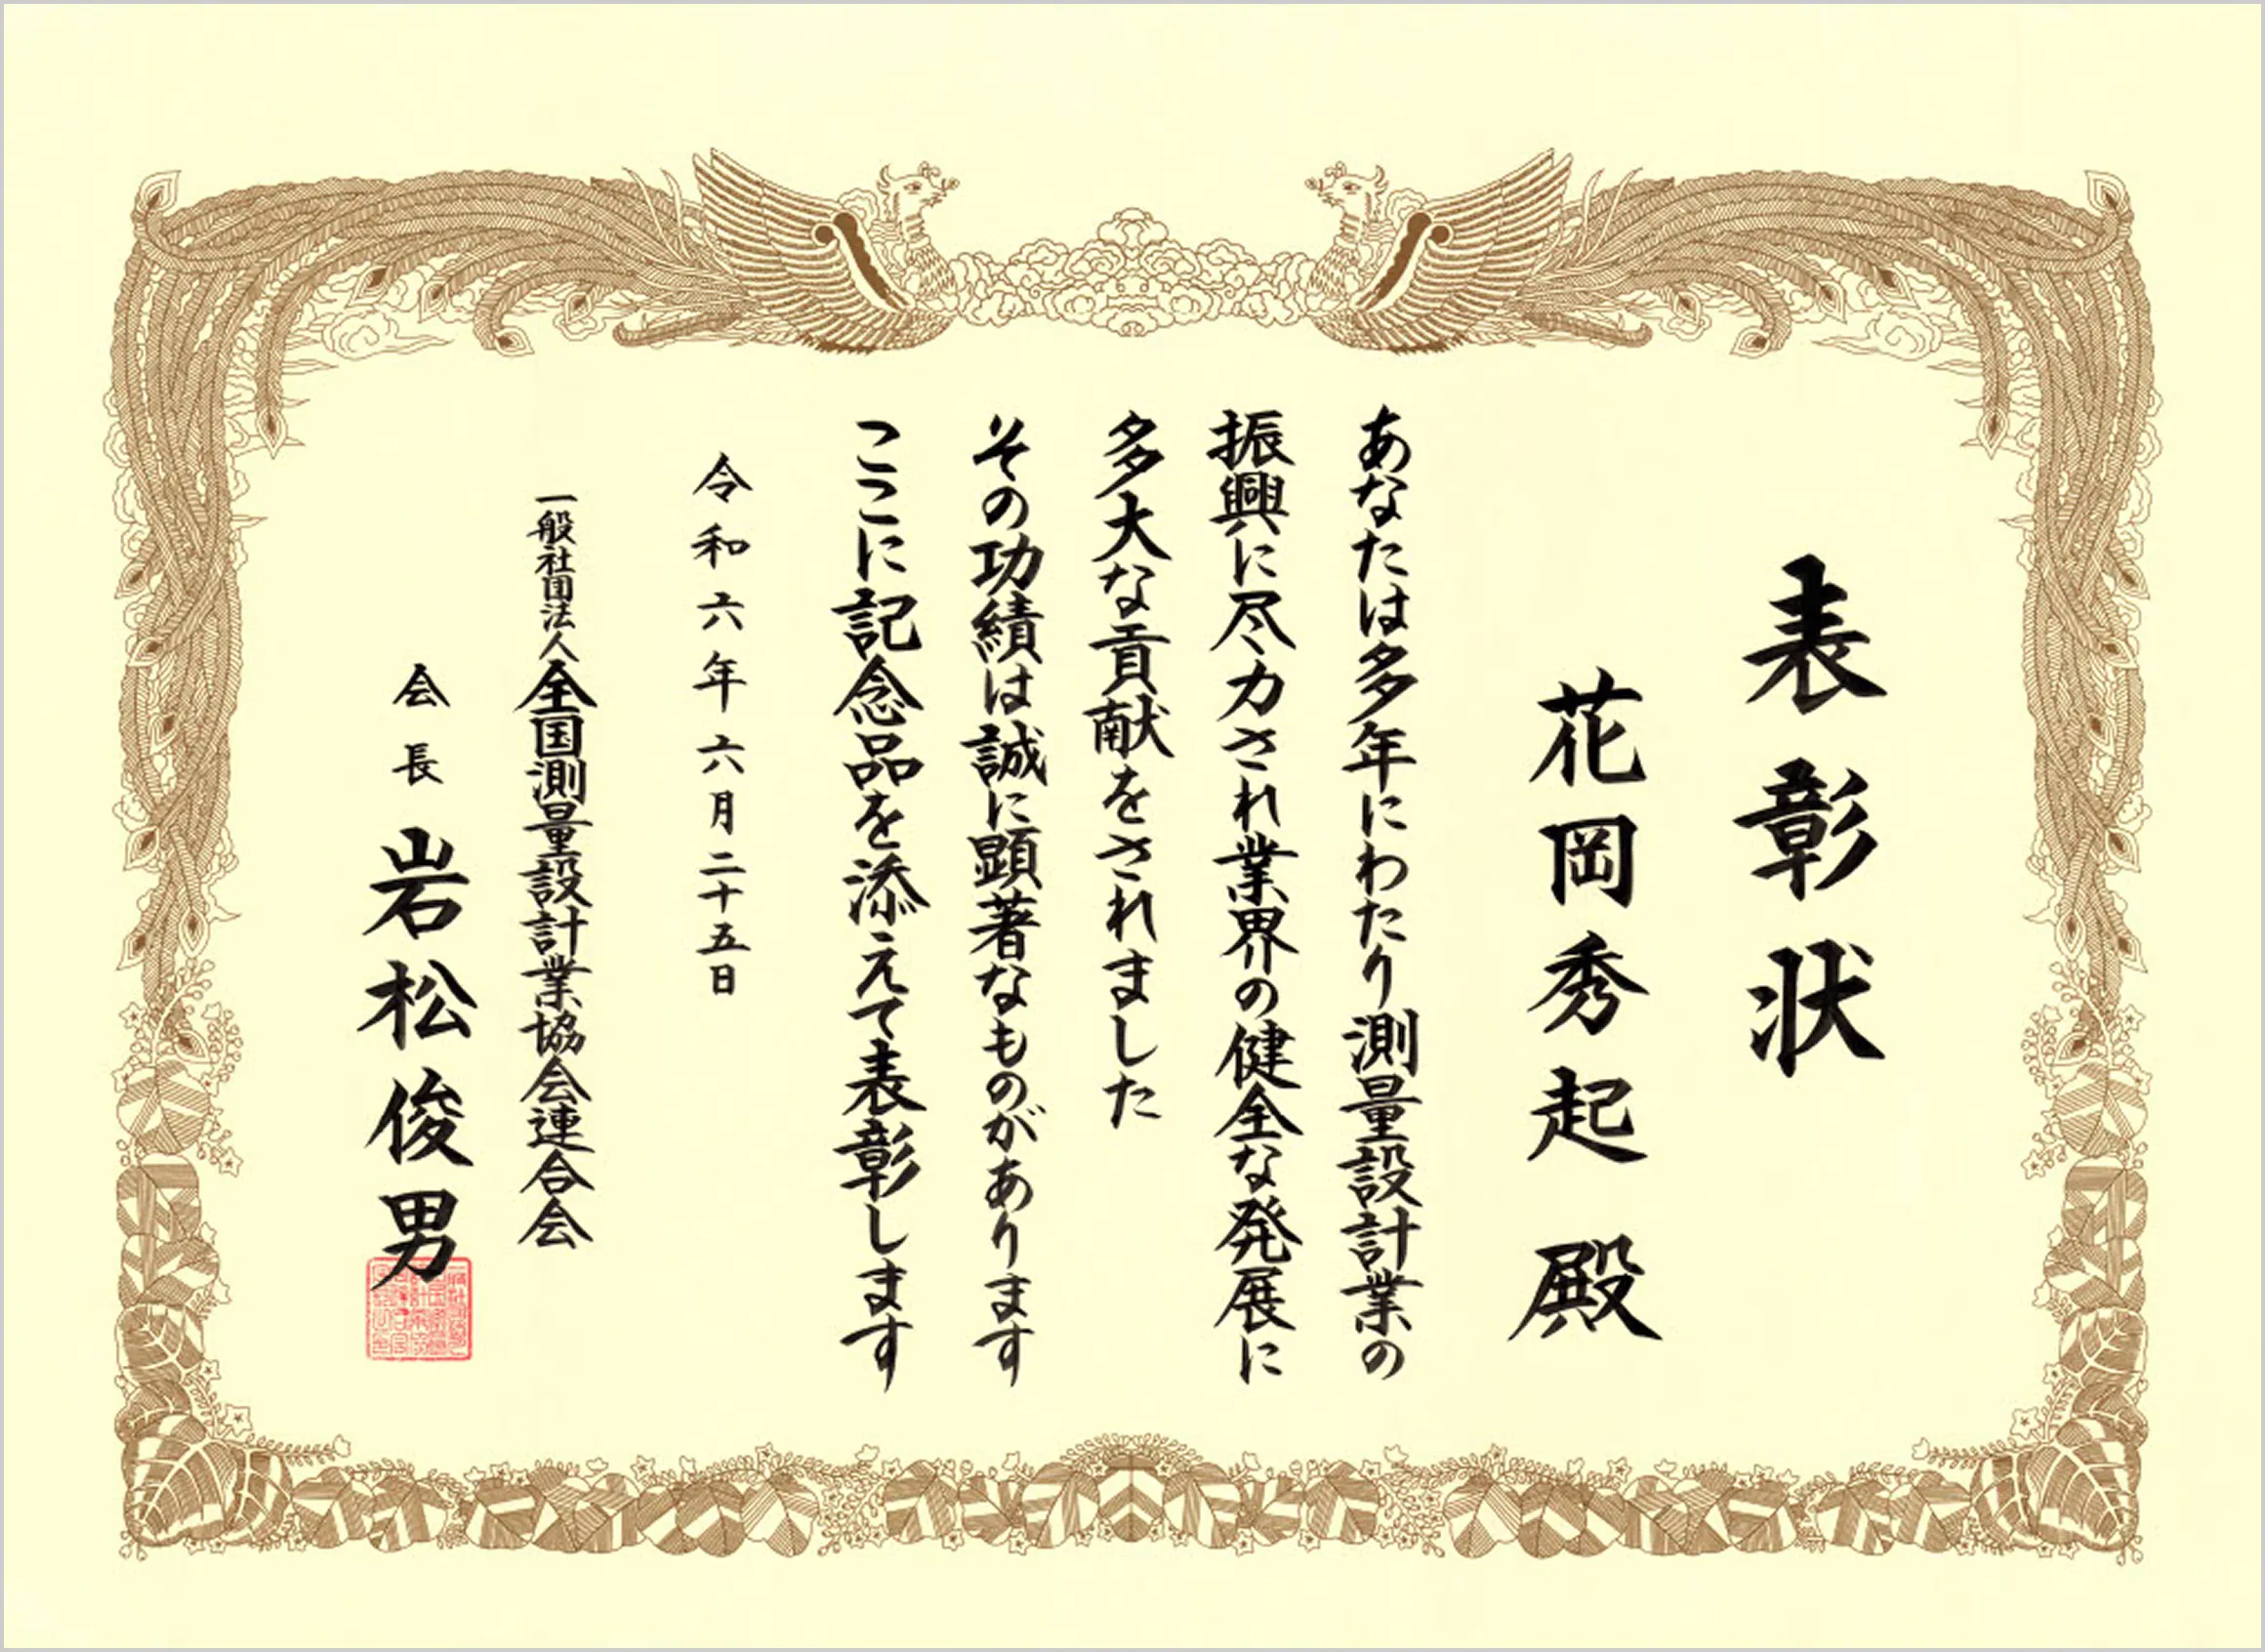 表彰状
花岡秀起 殿
あなたは多年にわたり測量設計業の
振興に尽力され業界の健全な発展に
多大な貢献をされました
その功績は誠に顕著なものがあります
ここに記念品を添えて表彰します
令和六年六月二十五日
一般社団法人全国測量設計業協会連合会
会長 岩松俊男